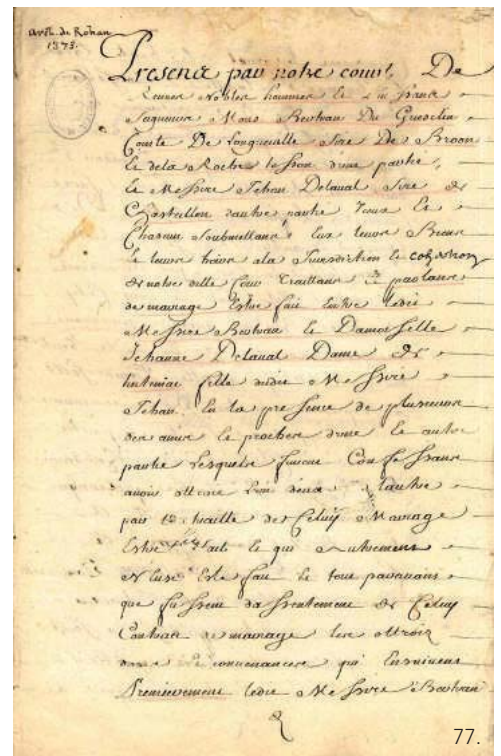 arch. de Rohan
1373.
Presence par notre court De
Rennes Nobles hommes et
Seigneurs Mons Bertran Du Guesclin
Comte De Longueville Sire De Broon
Et dela Roche tesson dune partie,
Et Messire Jehan Delaval Sire de
Chastillon dautre partie Tous Et
Chacun Soubmettans Eux leurs Biens
et leurs hoirs ala Jurisdiction et cohertion
de notre dite Cour Traittans et parlans
de mariage Estre fait Entre ledit
Messire Bertran et Damoiselle
Jehanne Delaval Dame de
tinteniac fille dudit Messire
Jehan. En la presence de plusieurs
des amis et proches dune et autre
partie Lesquels furent Confessans
avoir ottroié lun deux a lautre
par de Celuy Mariage
Estre fait et qui Autrement
Neust Esté fait et tout paravant
que fussent dassentement de Celuy
Contract de mariage les ottrois
dons et convenances qui Ensuivent
Premierement ledit Messire Bertran
77.